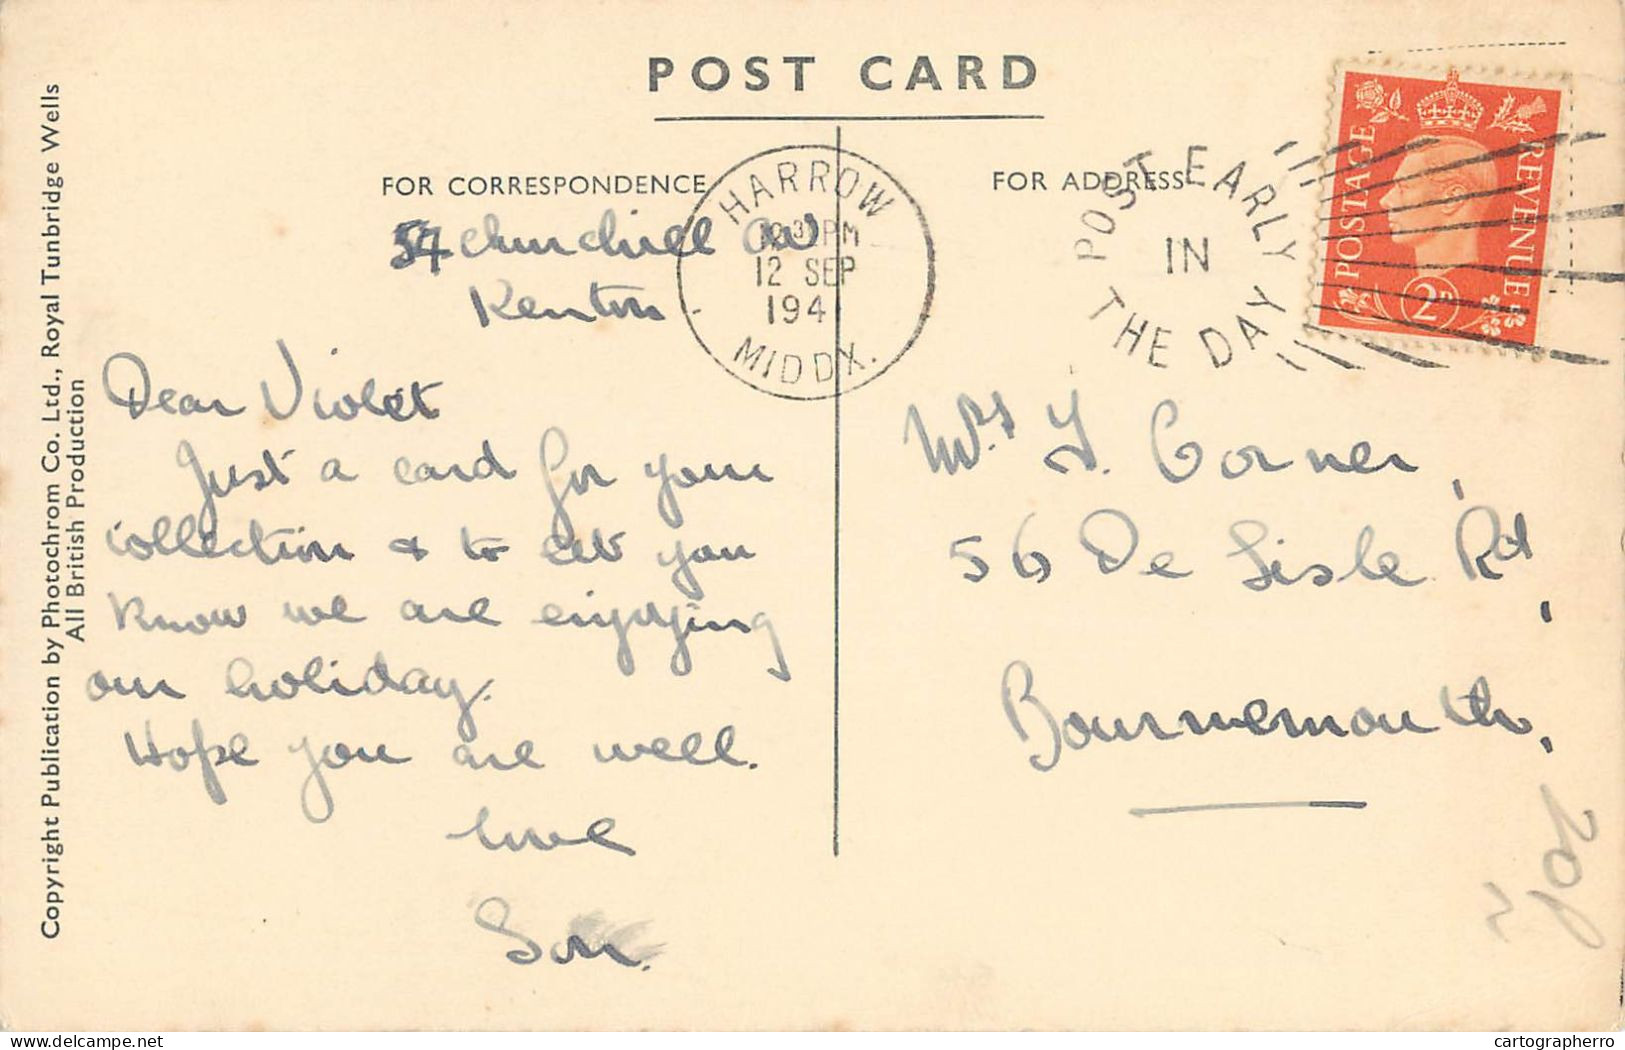 POST CARD
FOR CORRESPONDENCE
FOR ADDRESS
HARROW
PM
12 SEP
194
MIDDX.
POST EARLY
IN
THE DAY
POSTAGE
REVENUE
2D
Churchill Av
Kenton.
Dear Violet
Just a card for your
collection & to let you
know we are enjoying
our holiday.
Hope you are well.
love
Son.
Mrs Corner,
56 De Lisle Rd,
Bournemouth.
20p
Copyright Publication by Photochrom Co. Ltd., Royal Tunbridge Wells
All British Production
delcampe.net
cartographerro